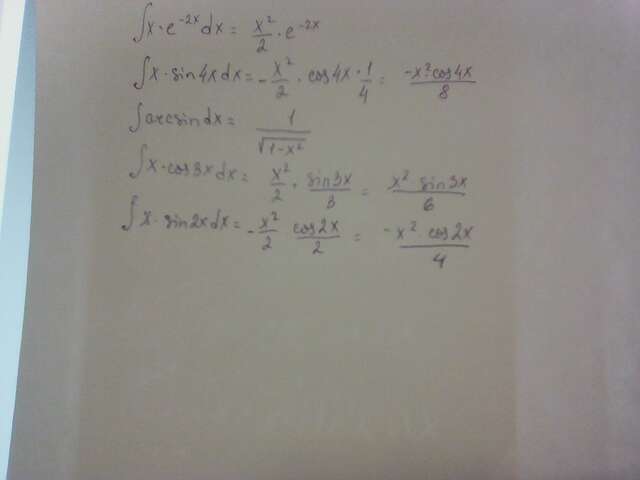 ∫x·e^{-2x}dx = x²/2 · e^{-2x}
∫x·sin4xdx = -x²/2 · cos4x · 1/4 = -x²·cos4x/8
∫arcsindx = 1/√(1-x²)
∫x·cos3xdx = x²/2 · sin3x/3 = x² sin3x/6
∫x·sin2xdx = -x²/2 cos2x/2 = -x²·cos2x/4